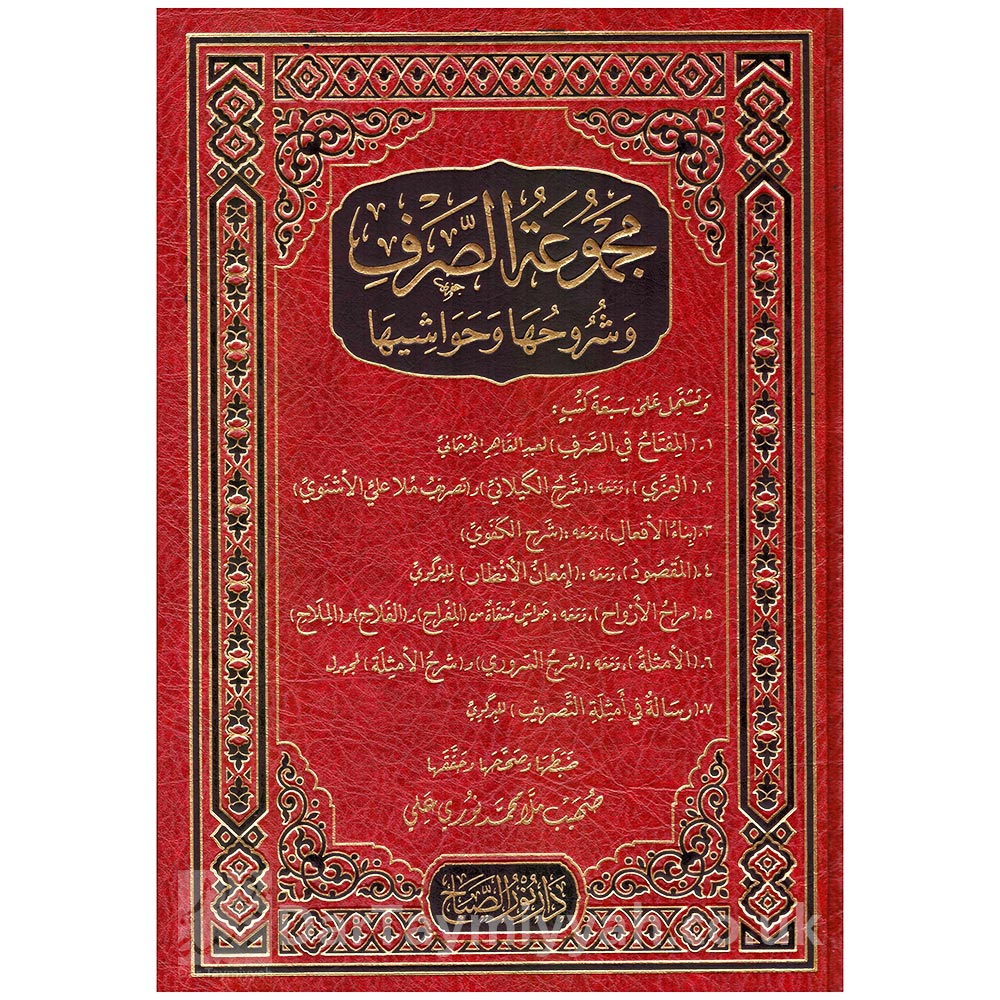 مَجْمُوعَةُ الصَّرْفِ
وَشُرُوحُهَا وَحَوَاشِيهَا
وَتشتمل عَلى سَبعَة كتُبٍ :
١. (المِفتَاحُ في الصَّرفِ) لعبد القاهر الجُرجَانيِّ
٢. (العِزِّي)، وَمَعَه : (شَرحُ الكَيلَانيِّ) و(تصريفُ مُلا عليِّ الأُشنَويِّ)
٣. (بِنَاءُ الأفعَالِ)، وَمَعَه : (شَرح الكَفَويِّ)
٤. (المَقصُودُ)، وَمَعَه : (إمْعَانُ الأَنظَارِ) للبِرْگويِّ
٥. (مراحُ الأَروَاحِ)، وَمَعَه : حَوَاشٍ مُنتَقاةٌ من (المِفْراحِ) و(الفَلَاحِ) و(المِلَاحِ)
٦. (الأمثِلةُ)، وَمَعَه : (شَرحُ السَّروري) و(شَرحُ الأَمثِلَةِ)
٧. (رسَالةٌ في أَمثِلَةِ التَّصريفِ) للبِرْگويِّ
ضَبَطهَا وصَحَّحَهَا وحَقَّقهَا
صُهَيْبْ مُلَّا مُحَمَّد نُوري عَلي
دَار نُورُ الصَّبَاحِ
Dar Taymiyyah.co.uk
Dar Taymiyyah